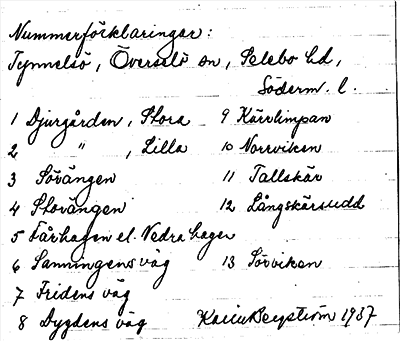 Nummerförklaringar:
Tynnelsö, Överselö sn, Selebo hd,
Söderm. l.
1 Djurgården, Stora 9 Kärrlimpan
2 " , Lilla 10 Norrviken
3 Sövängen 11 Tallskär
4 Storängen 12 Långskärsudd
5 Fårhagen el. Nedra hagen
6 Sanningens väg 13 Sörviken
7 Fridens väg
8 Dygdens väg Karin Bergström 1937